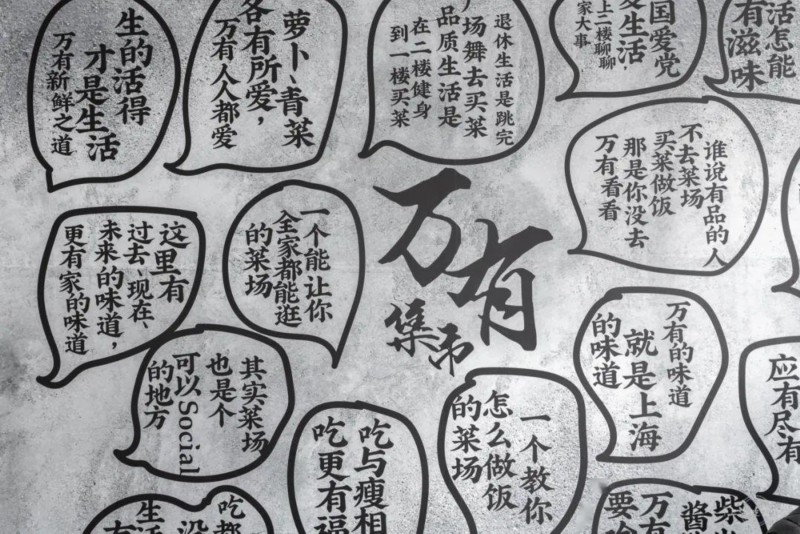 生的活得
才是生活
万有新鲜之道
萝卜、青菜
各有所爱，
万有人人都爱
退休生活是跳完
广场舞去买菜
品质生活是
在二楼健身
到一楼买菜
国爱党
爱生活，
上二楼聊聊
家大事
活怎能
有滋味
谁说有品的人
不去菜场
买菜做饭
那是你没去
万有看看
这里有
过去、现在、
未来的味道，
更有家的味道
一个能让你
全家都能逛
的菜场
万有
集市
万有的味道
就是上海
的味道
其实菜场
也是个
可以Social
的地方
吃与瘦相
吃更有福
一个教你
怎么做饭
的菜场
应有尽有
吃都
没
生活
有
柴
酱
万有
要